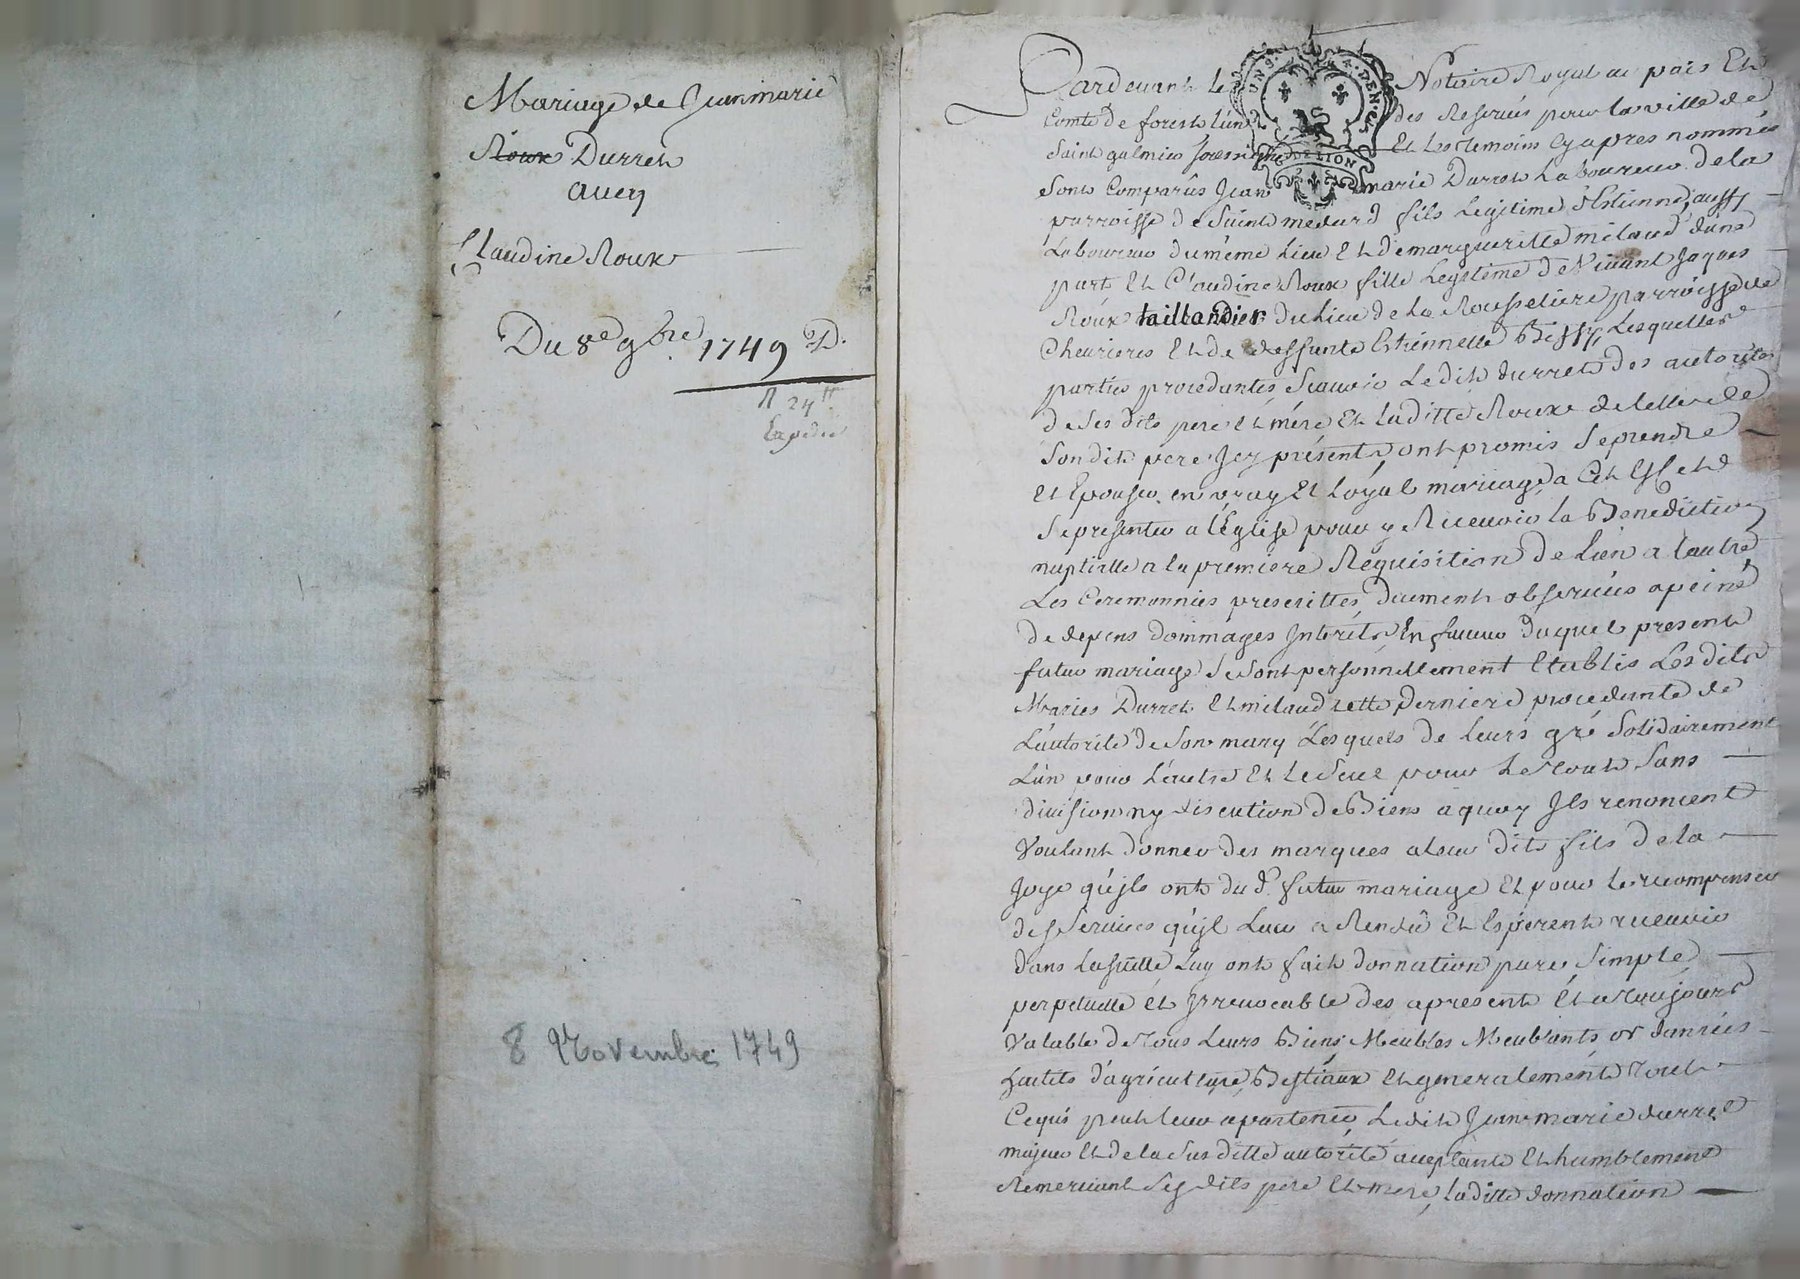 Mariage de Jeanmarie
Roux Durret
avec
Claudine Roux
Du 8e 9bre 1749 D.
R 24tt
Expediee
8 Novembre 1749
Pardevant le Notaire Royal au païs Et
Comté de forest l'ùn des Reservés pour la ville de
Saint galmier soussigné Et les temoins cy apres nommés
GEN. DE LION
Sont Comparûs Jean marie Durret Laboureur de la
parroisse de Saint medard fils Legitime d'Estienne, aussy
Laboureur du même Lieu Et de margueritte milaud d'une
part Et Claudine Roux fille Legitime de Vivant Jaques
Roux taillandier du Lieu de la Rousseliere parroisse de
Chevrieres Et de deffunte Estiennette Lesquelles
parties procedantes, Scavoir Ledit durret des autorités
de Ses dits pere Et mere Et Laditte Roux de Celle de
Son dit pere Jcy présents, ont promis Se prendre
Et Epouser en vray Et Loyal mariage, a Cet Effet de
Se presenter a l'Eglise pour y Recevoir la Benediction
nuptialle a la premiere Requisition de L'ùn a l'autre
Les Ceremonnies prescrittes, duement observées a peine
de depens dommages Interêts, En faveur duquel present
futur mariage Se Sont personnellement Etablis Les dits
Maries Durret Et milaud cette derniere procedante de
L'autorité de Son mary Lesquels de Leurs gré Solidairement
L'ùn pour L'autre Et Le Seul pour Le tout Sans
division ny discution de Biens a quoy Jls renoncent
Voulant donner des marques a leur dits fils de la
Joye qu'jls ont du d. futur mariage Et pour Le recompenser
des Services qu'jl Leur a Rendû Et Esperent recevoir
dans La suitte Luy ont fait donnation pure Simple
perpetuelle Et Jrrevocable des apresent Et a toujours
Valable de tous Leurs Biens Meubles Meublants or danrées
outils d'agriculture, Bestiaux Et generalement tout
Cequi peut leur apartenir, Ledit Jean marie durret
majeur Et de la Sus ditte autorité acceptante Et humblement
Remerciant Ses dits pere Et mere, laditte donnation